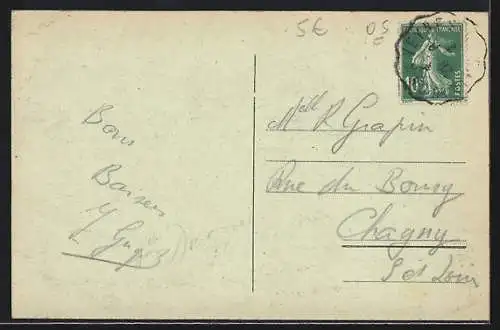 5€ OS
E
RÉPUBLIQUE FRANÇAISE
10c
POSTES
Bons
Baisers
Melle R Grapin
Rue du Bourg
Chagny
S et Loire